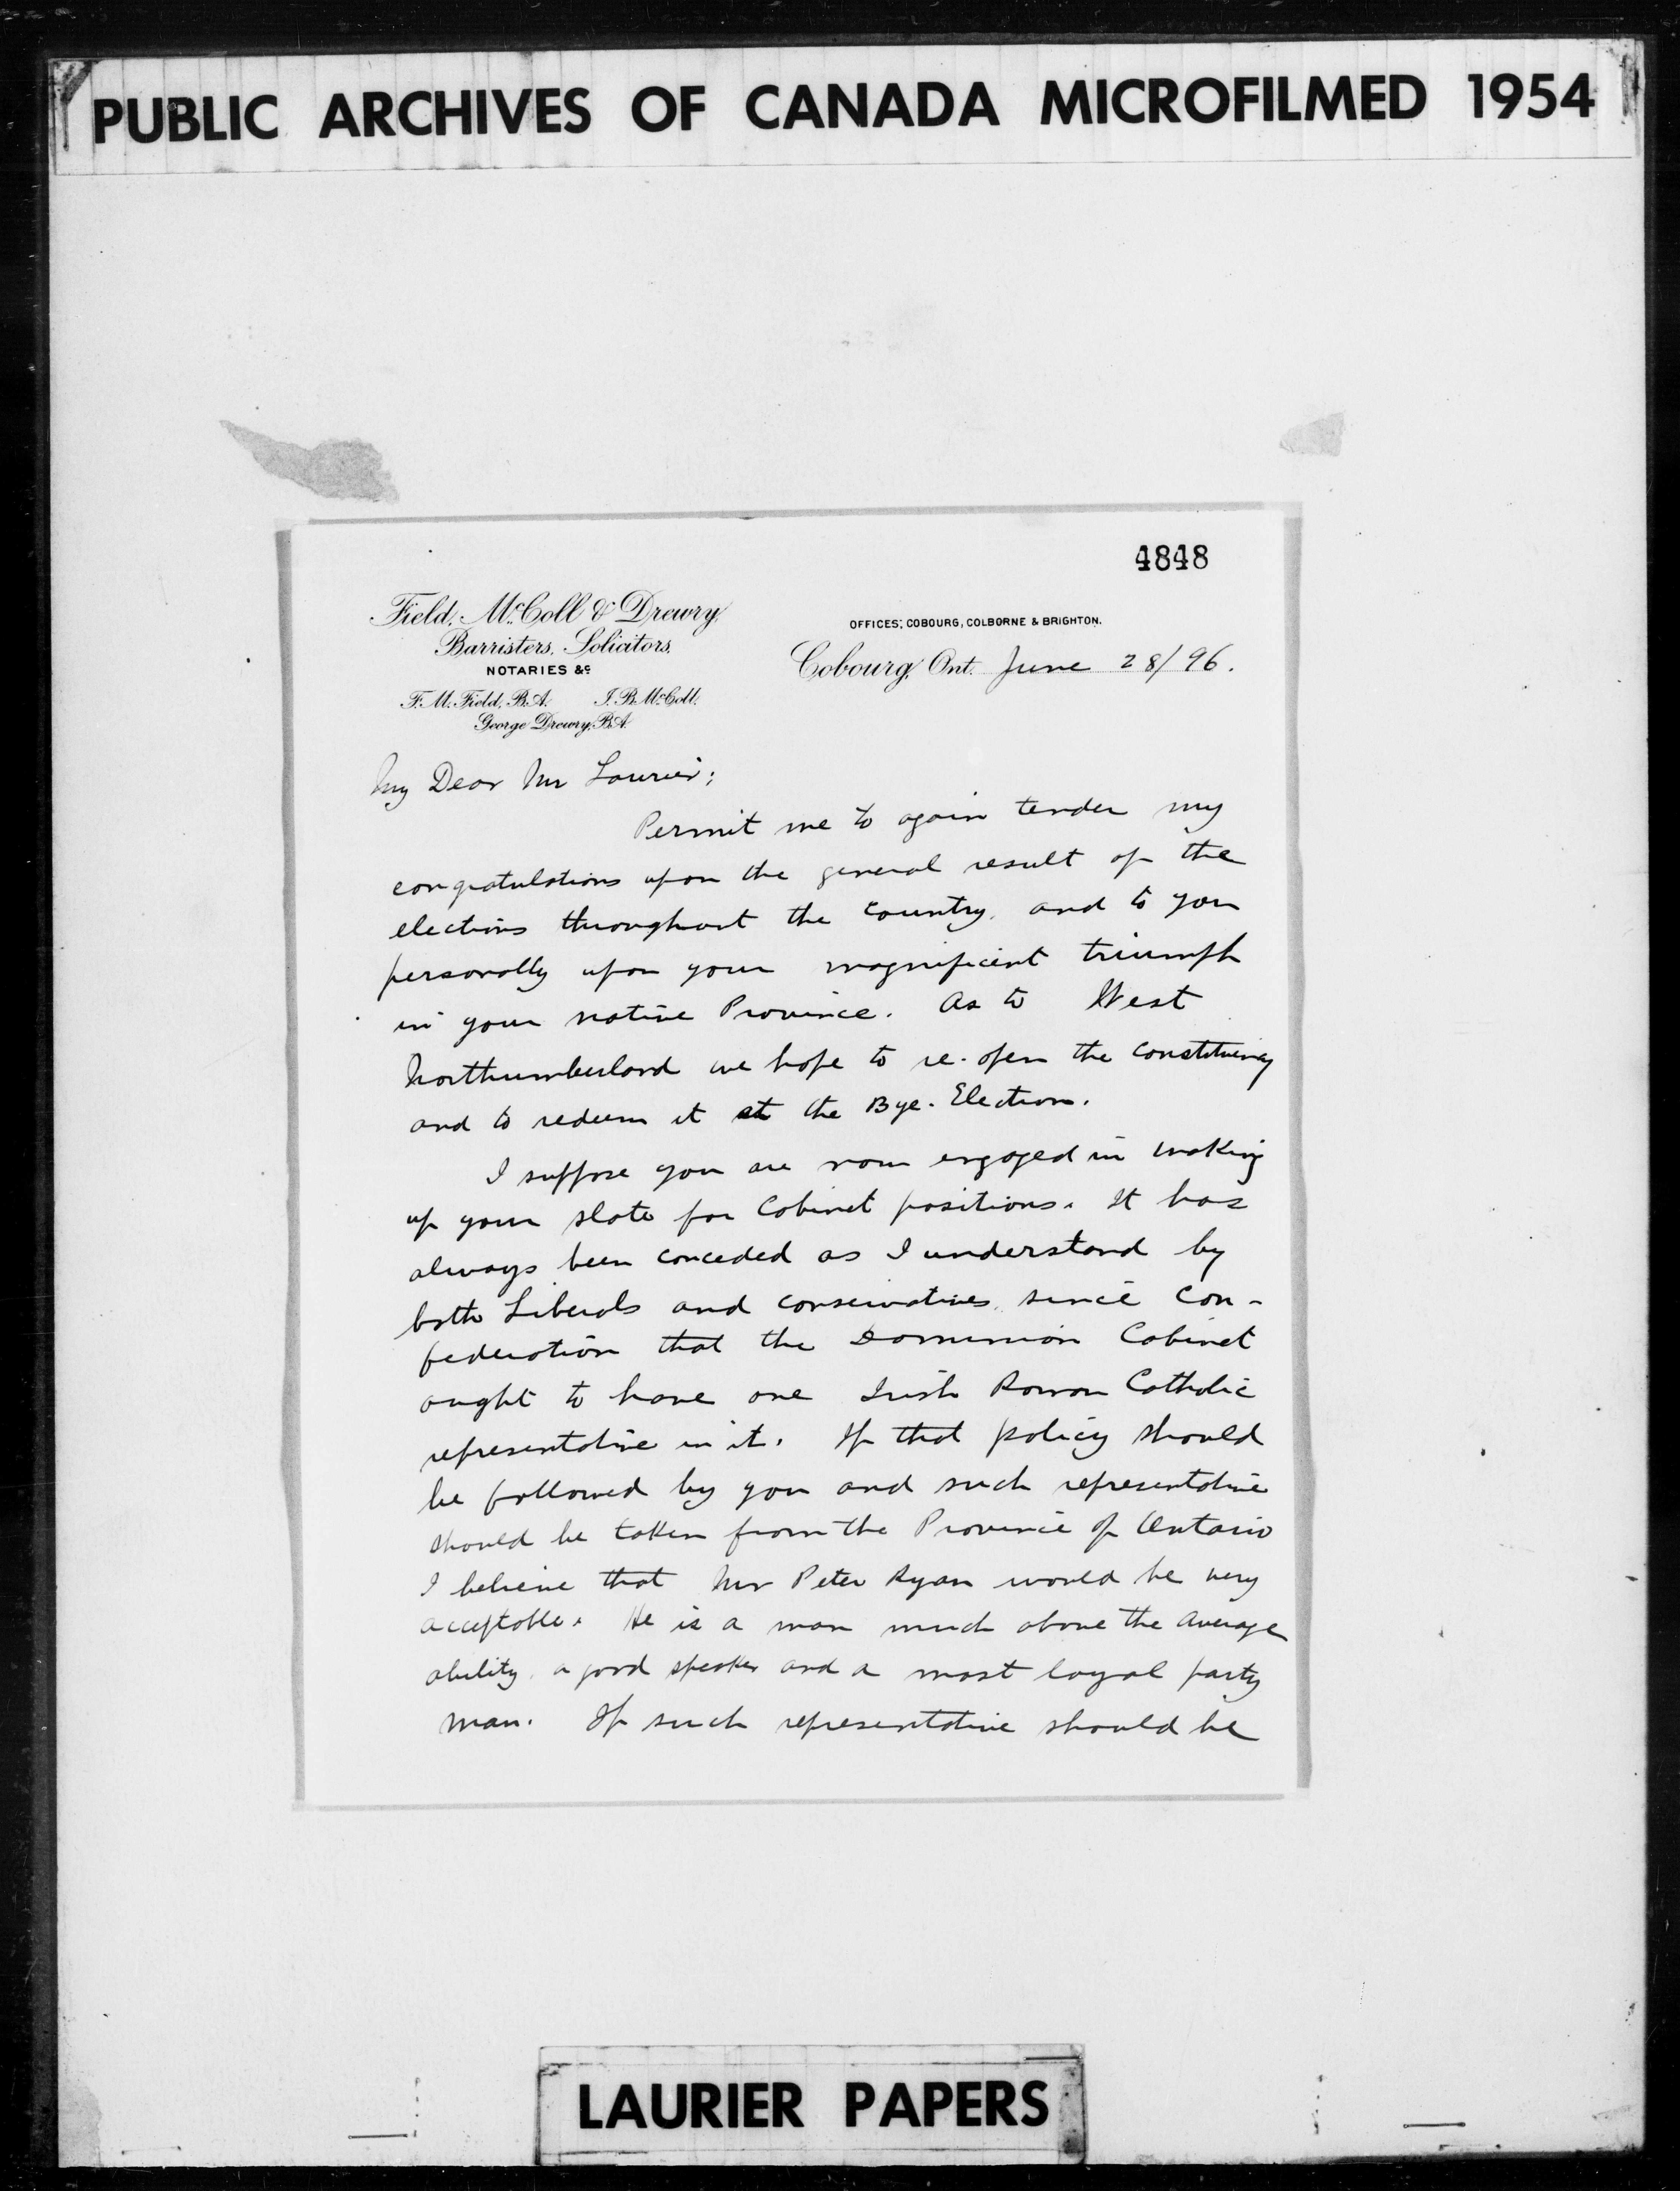 PUBLIC ARCHIVES OF CANADA MICROFILMED 1954
4848
Field, McColl & Drewry,
Barristers, Solicitors,
NOTARIES &c
F. M. Field, B.A. J. B. McColl.
George Drewry, B.A.
OFFICES; COBOURG, COLBORNE & BRIGHTON.
Cobourg, Ont. June 28/96.
My Dear Mr Laurier;
Permit me to again tender my
congratulations upon the general result of the
elections throughout the country, and to you
personally upon your magnificent triumph
in your native Province. As to West
Northumberland we hope to re-open the constituency
and to redeem it at the Bye-Election.
I suppose you are now engaged in making
up your slate for Cabinet positions. It has
always been conceded as I understand by
both Liberals and conservatives, since Con-
federation that the Dominion Cabinet
ought to have one Irish Roman Catholic
representative in it. If that policy should
be followed by you and such representative
should be taken from the Province of Ontario
I believe that Mr Peter Ryan would be very
acceptable. He is a man much above the average
ability, a good speaker and a most loyal party
man. If such representative should be
LAURIER PAPERS